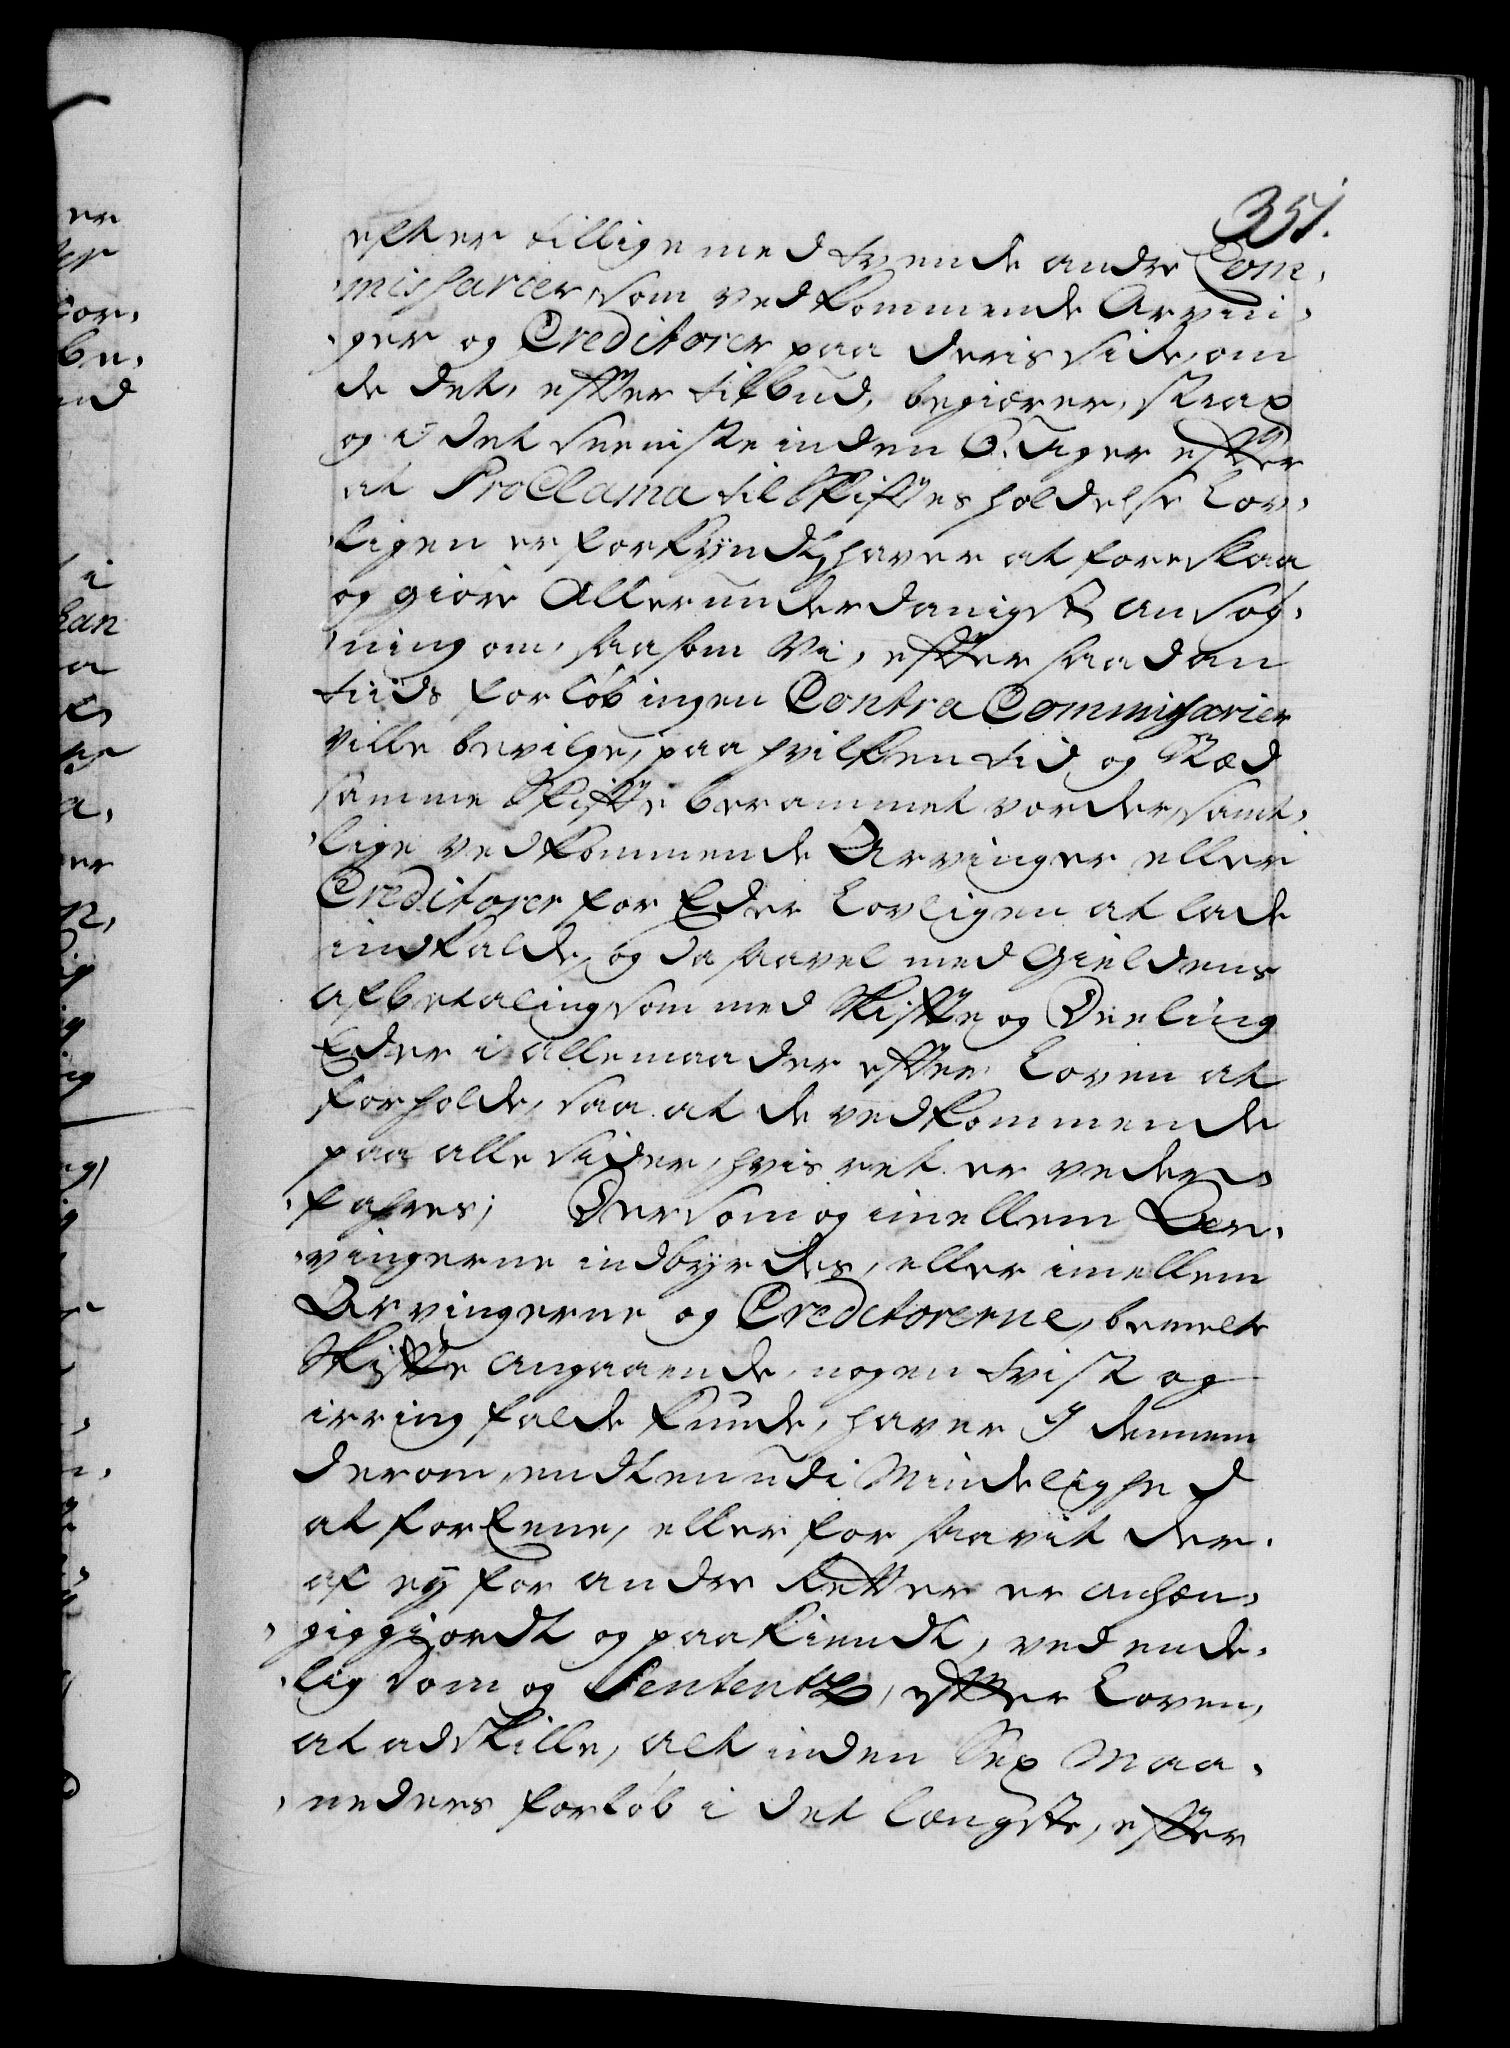 351.
efter tillige med tvende andre Com-
-missarier, som vedkommende Arvin-
-ger og Creditorer paa deris side, om
de det, efter tilbud, begierer, strax
og i det seeniste inden 6. Uger efter
at Proclama til Skiftes holdelse Lov-
-ligen er forkyndt, haver at foreslaa
og giøre Allerunderdanigst ansøg-
-ning om, saasom Vi, efter saadan
tiids forløb ingen Contra Commissarier
ville bevilge, paa hvilken tid og stæd
samme Skifte berammet vorder, samt-
-lige vedkommende Arvinger eller
Creditorer for Eder Lovligen at lade
indkalde, og da saavel med Gieldens
afbetaling som med Skifte og Deeling
Eder i allemaader efter Loven at
forholde, saa at de vedkommende
paa alle sider, hvis ret er veder-
-fahres; Dersom og imellem Ar-
-vingerne indbyrdes, eller imellem
Arvingerne og Creditorerne, bemelte
Skifte angaaende, nogen tvist og
irring falde kunde, haver I dennem
derom, endten udi Mindelighed
at forEene, eller for saavit der-
af ey for andre Retter er anhæn-
-giggiordt og paakiendt, ved ende-
-lig Dom og Sententz, efter Loven,
at adskille, alt inden Sex Maa-
-neders forløb i det længste, efter